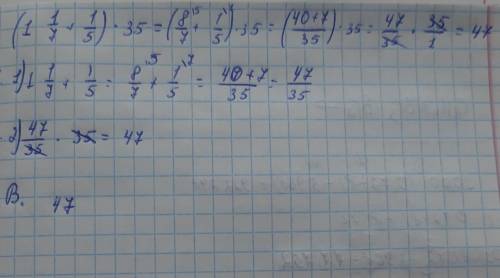 (1 1/7 + 1/5) · 35 = (8/7 ⁵ + 1/5 ⁷) · 35 = (40+7/35) · 35 = 47/35 · 35/1 = 47
1) 1 1/7 + 1/5 = 8/7 ⁵ + 1/5 ⁷ = 40+7/35 = 47/35
2) 47/35 · 35 = 47
В. 47